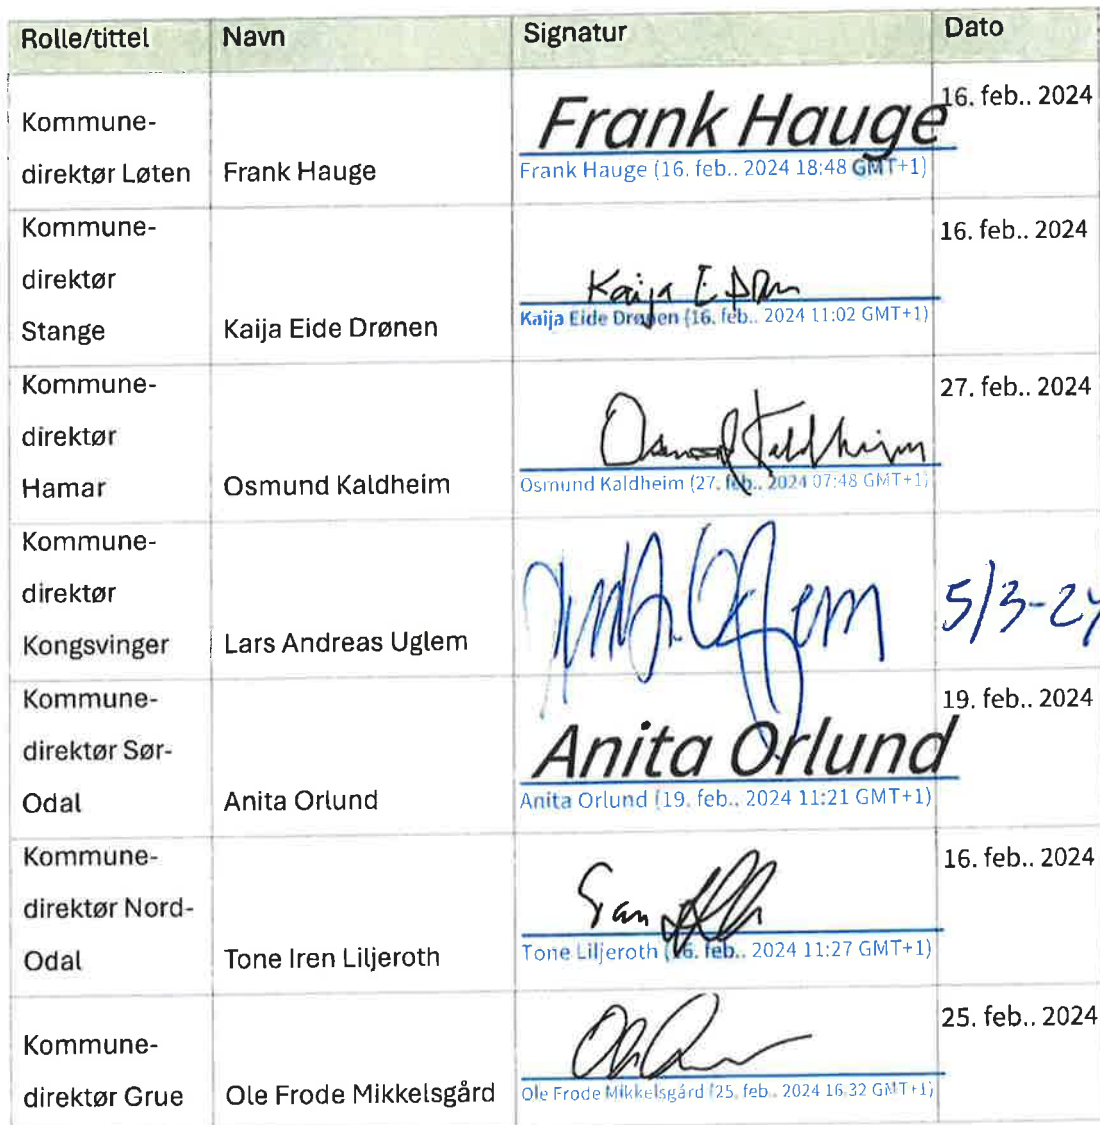 Rolle/tittel Navn Signatur Dato
Kommune-
direktør Løten Frank Hauge Frank Hauge 16. feb.. 2024
Frank Hauge (16. feb.. 2024 18:48 GMT+1)
Kommune-
direktør
Stange Kaija Eide Drønen Kaija E 16. feb.. 2024
Kaija Eide Drønen (16. feb.. 2024 11:02 GMT+1)
Kommune-
direktør
Hamar Osmund Kaldheim Osmund Kaldheim 27. feb.. 2024
Osmund Kaldheim (27. feb.. 2024 07:48 GMT+1)
Kommune-
direktør
Kongsvinger Lars Andreas Uglem Uglem 5/3-24
Kommune-
direktør Sør-
Odal Anita Orlund Anita Orlund 19. feb.. 2024
Anita Orlund (19. feb.. 2024 11:21 GMT+1)
Kommune-
direktør Nord-
Odal Tone Iren Liljeroth 16. feb.. 2024
Tone Liljeroth (16. feb.. 2024 11:27 GMT+1)
Kommune-
direktør Grue Ole Frode Mikkelsgård 25. feb.. 2024
Ole Frode Mikkelsgård (25. feb.. 2024 16:32 GMT+1)